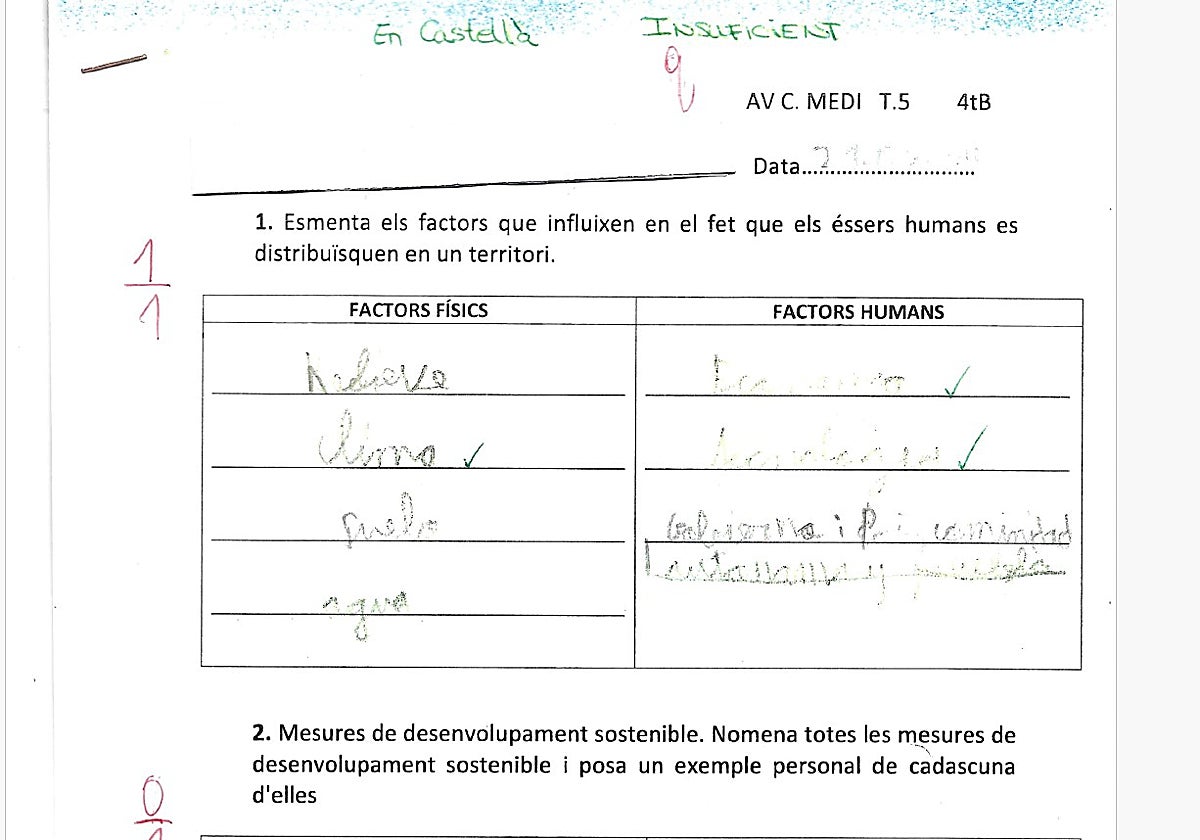 En Castellà INSUFICIENT
AV C. MEDI T.5 4tB
Data
1. Esmenta els factors que influixen en el fet que els éssers humans es
distribuïsquen en un territori.
1
1
FACTORS FÍSICS FACTORS HUMANS
Relieve
clima ✓
suelo
agua
2. Mesures de desenvolupament sostenible. Nomena totes les mesures de
desenvolupament sostenible i posa un exemple personal de cadascuna
d'elles
0